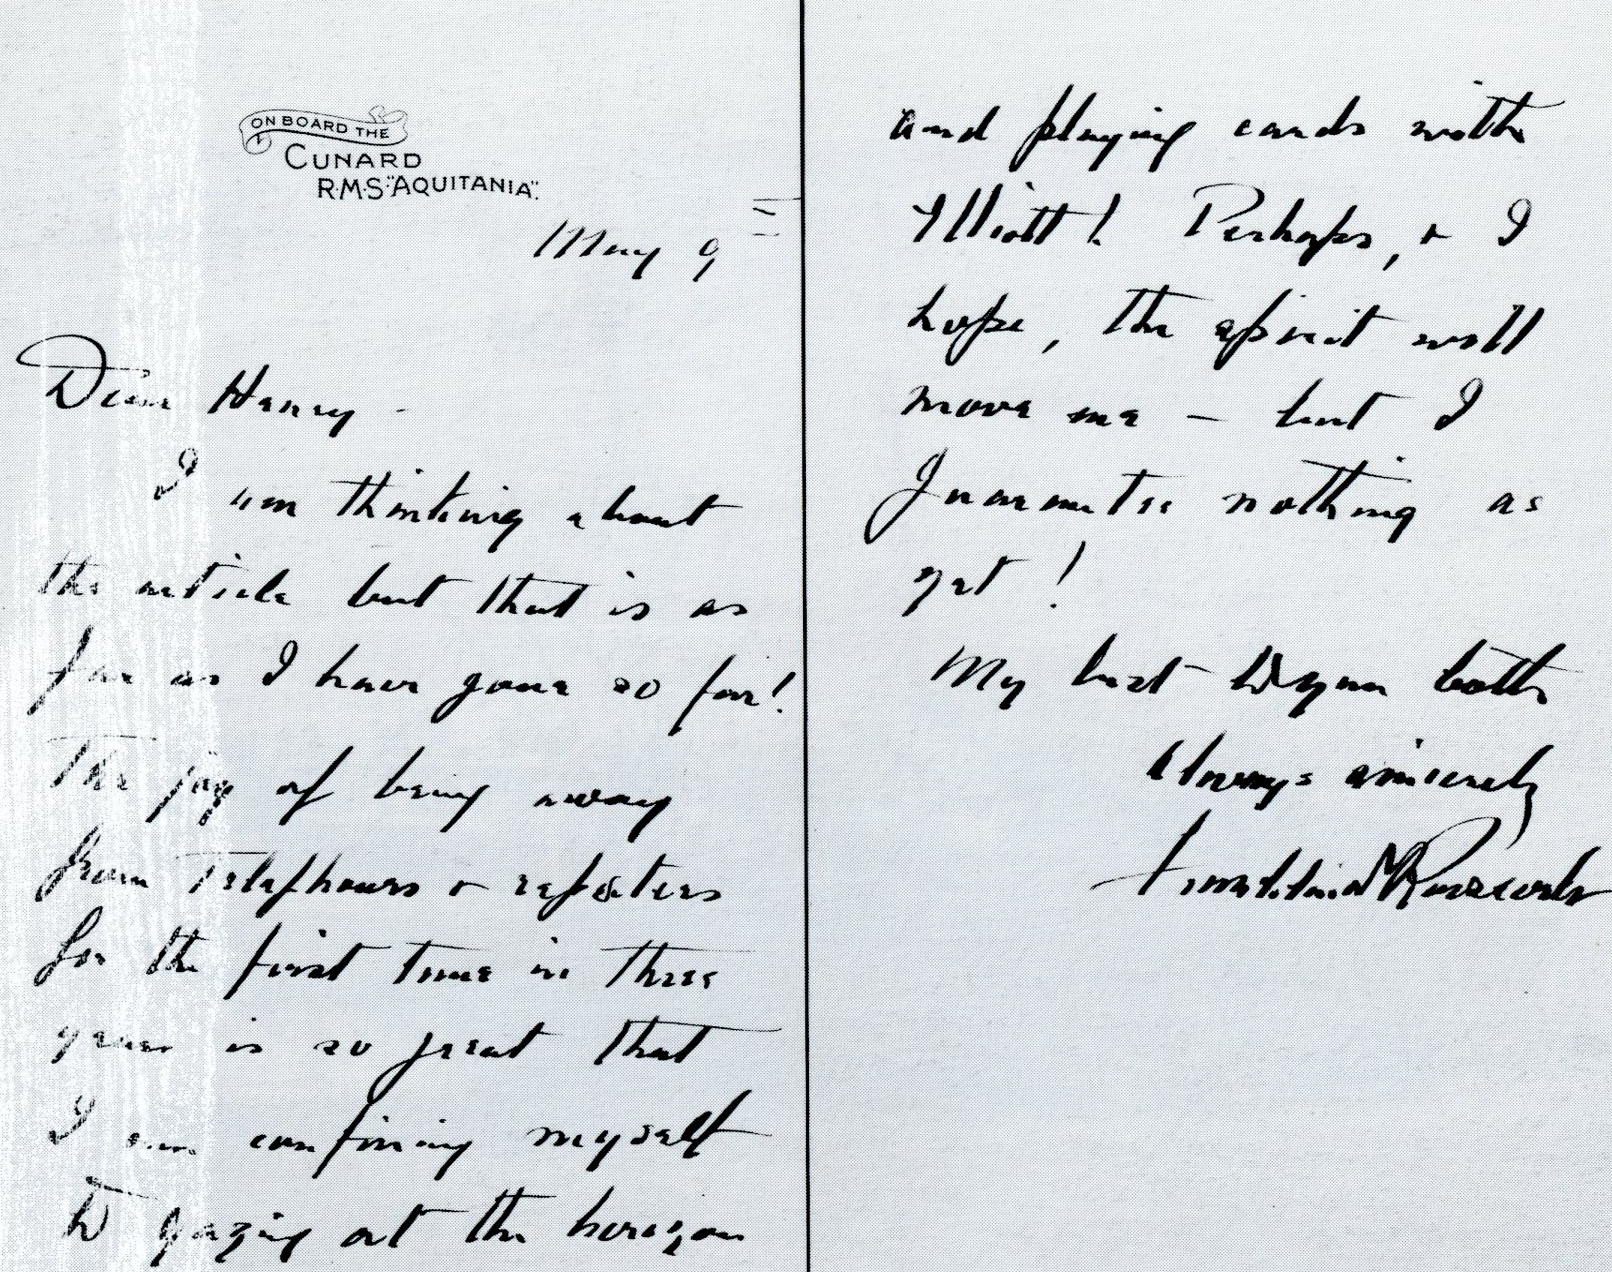 ON BOARD THE
CUNARD
R·M·S·"AQUITANIA".
May 9
Dear Henry -
I am thinking about
the article but that is as
far as I have gone so far!
The joy of being away
from telephones + reporters
for the first time in three
years is so great that
I am confining myself
to gazing at the horizon
and playing cards with
Elliott! Perhaps, + I
hope, the spirit will
move me – but I
guarantee nothing as
yet!
My best to you both
Always sincerely
Franklin D Roosevelt